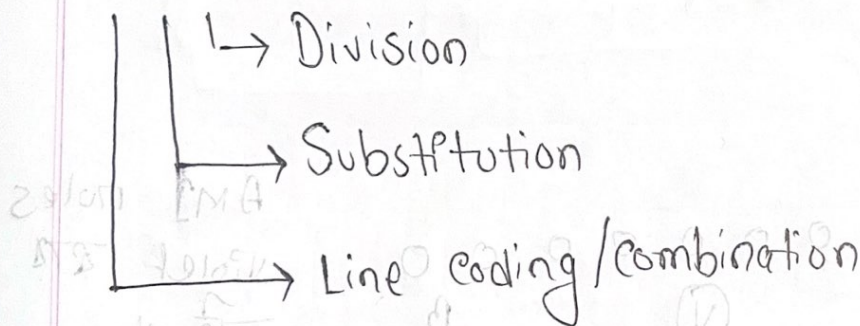 → Division
→ Substitution
→ Line coding/combination